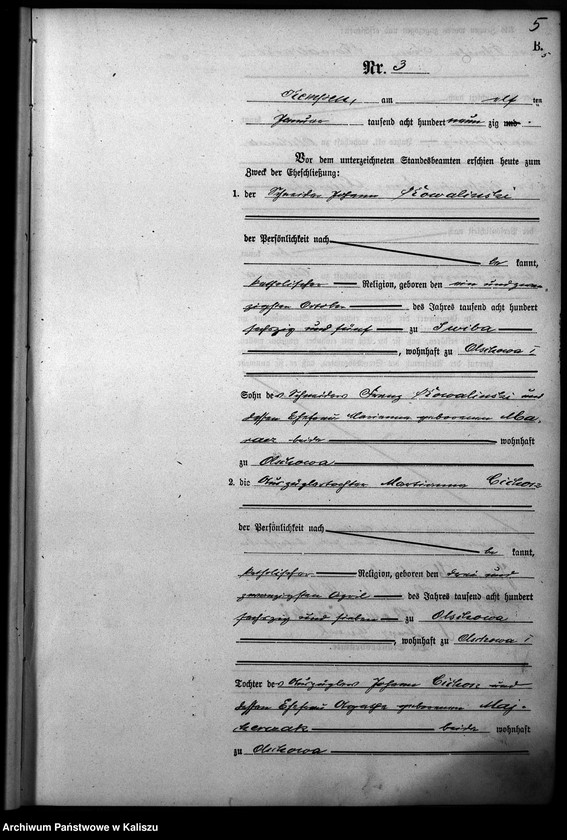 5
B.
5
Nr. 3
Kempen, am elf ten
Januar tausend acht hundert neun zig und
Vor dem unterzeichneten Standesbeamten erschien heute zum
Zweck der Eheschließung:
1. der Schneider Johann Kowalinski
der Persönlichkeit nach
be kannt,
katholischer Religion, geboren den ein und zwan-
zigsten October des Jahres tausend acht hundert
sechszig und fünf zu Swiba
, wohnhaft zu Olschowa I
Sohn des Schneiders Franz Kowalinski und
dessen Ehefrau Marianna geborenen Ma-
beide wohnhaft
zu Olschowa
2. die Auszüglertochter Marianna Cichosz
der Persönlichkeit nach
be kannt,
katholischer Religion, geboren den drei und
zwanzigsten April des Jahres tausend acht hundert
sechszig und sieben zu Olschowa
, wohnhaft zu Olschowa I
Tochter des Auszüglers Johann Cichosz und
dessen Ehefrau Agatha geborenen Maj-
cherczak beide wohnhaft
zu Olschowa
Archiwum Państwowe w Kaliszu